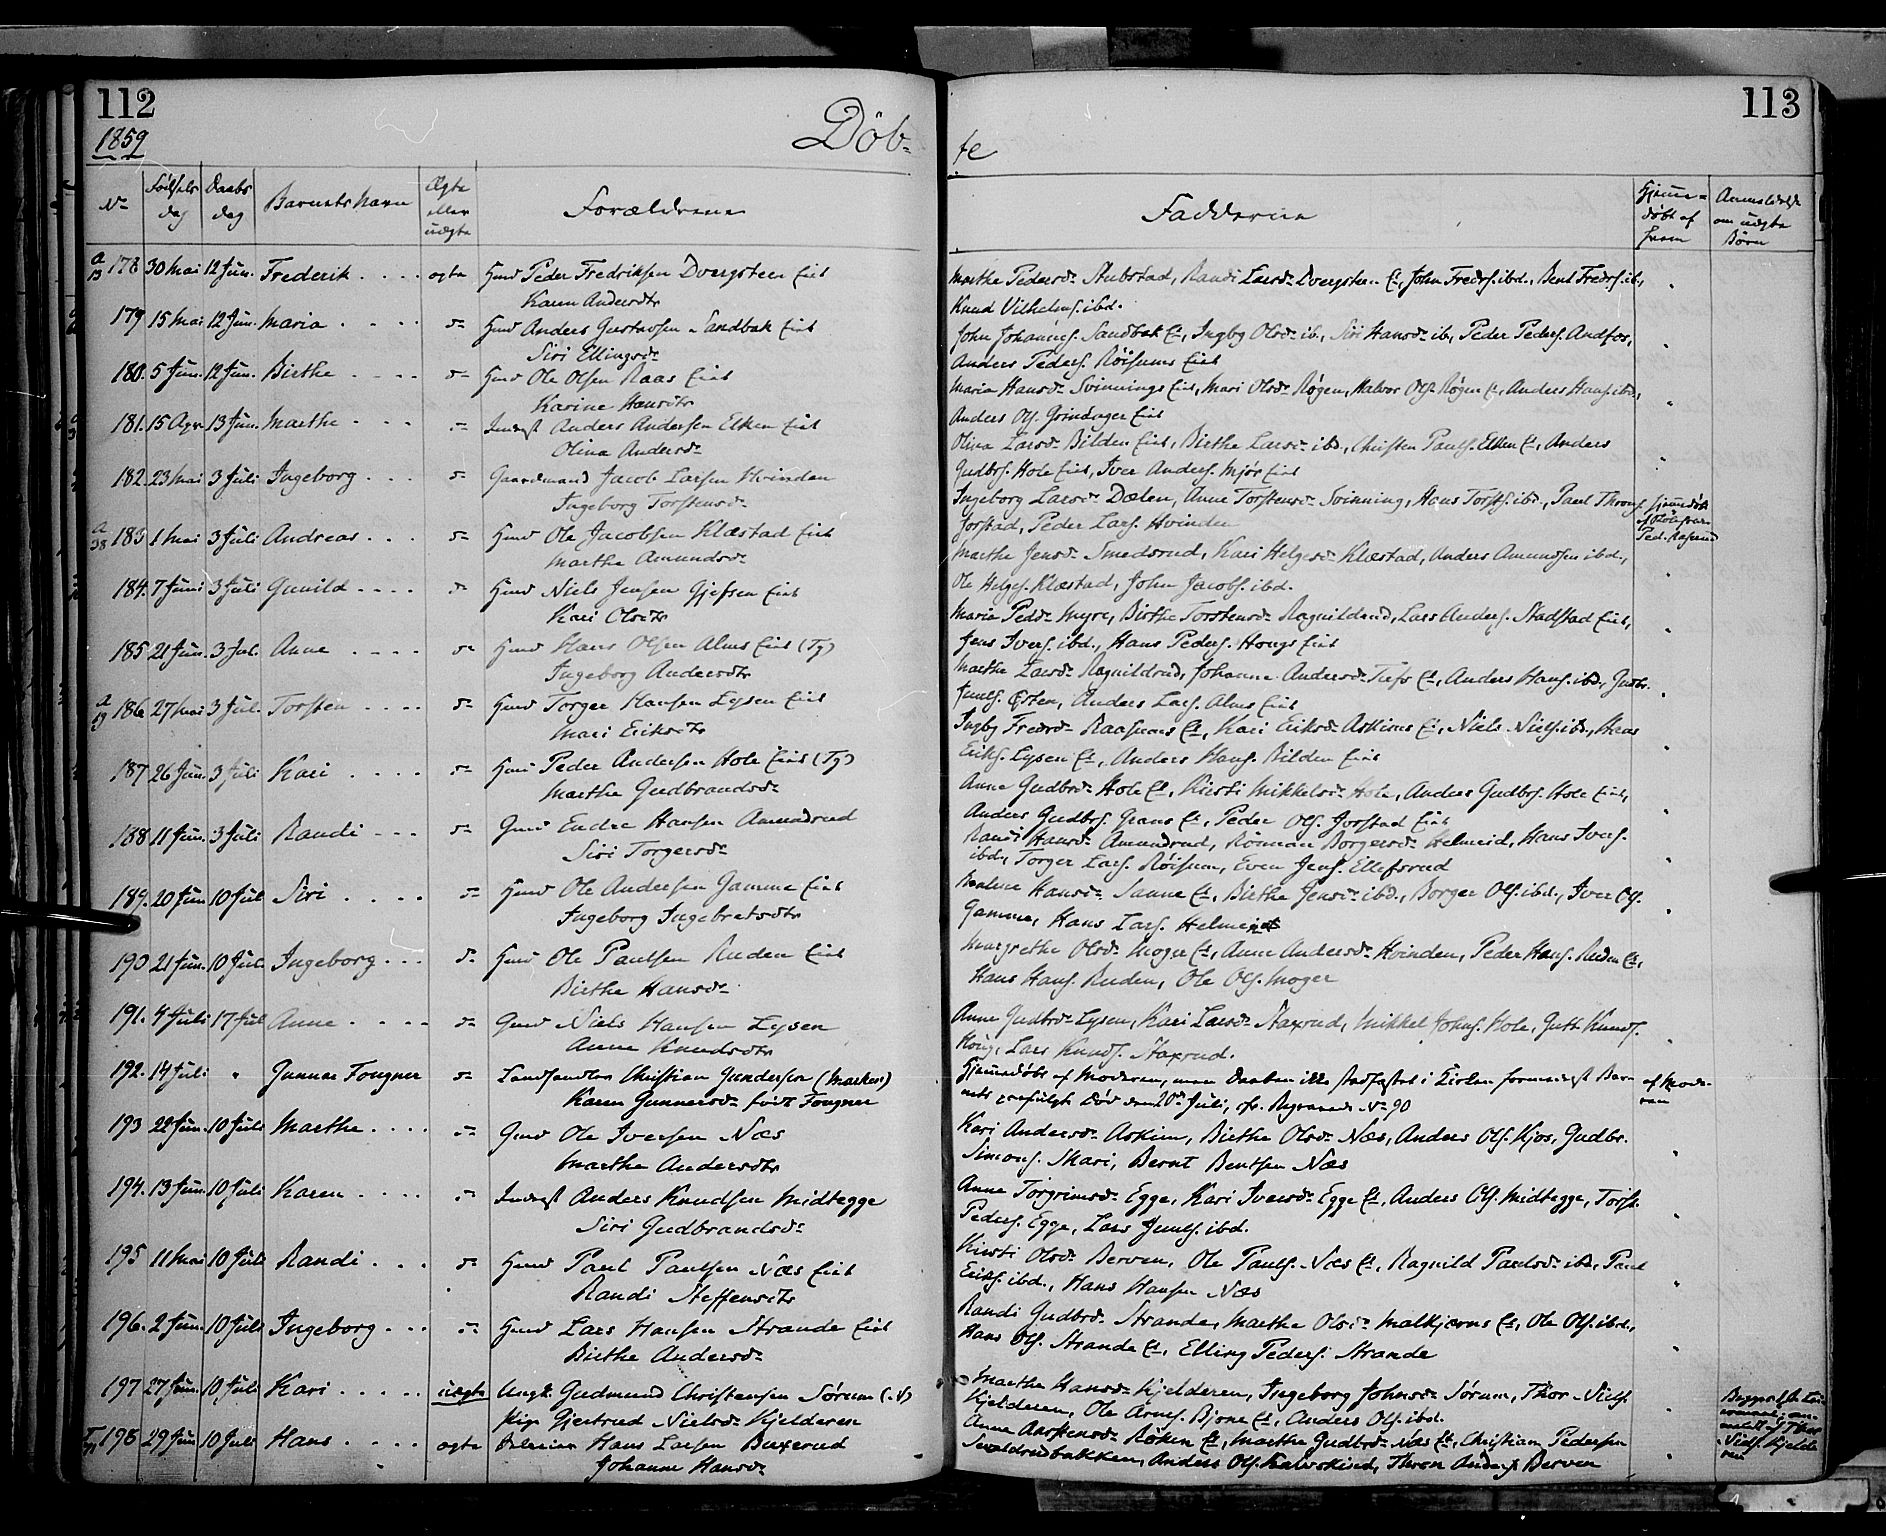 112
1859
Döb-
No
Fødsels dag
Daabs dag
Barnets Navn
Ægte eller uægte
Forældrene
178 30 Mai 12 Jun. Frederik . . . . ægte Hmd Peder Fredriksen Dvergsten Eiet
Karen Andersdtr
179 15 Mai 12 Jun. Maria . . . . do Hmd Anders Gustavsen Sandbak Eiet
Siri Ellingsdr
180. 5 Jun. 12 Jun. Birthe . . . . do Hmd Ole Olsen Raas Eiet
Karine Hansdtr
181. 15 Apr. 13 Jun. Marthe . . . do Inderst Anders Andersen Elken Eiet
Olina Andersdr
182. 23 Mai 3 Juli Ingeborg . . . do Gaardmand Jacob Larsen Hvinden
Ingeborg Torstensdr
183 1 Mai 3 Juli Andreas . . . do Hmd Ole Jacobsen Klæstad Eiet
Marthe Amundsdr
184. 7 Juni 3 Juli Gunild . . . . do Hmd Niels Jensen Gjefsen Eiet
Kari Olsdtr
185 21 Jun. 3 Jul. Anne . . . . do Hmd Hans Olsen Alms Eiet (Tg)
Ingeborg Andersdtr
186. 27 Mai 3 Jul. Torsten . . . . do Hmd Torger Hansen Lysen Eiet
Mari Eriksdtr
187 26 Jun. 3 Juli Kari . . . . do Hmd Peder Andersen Hole Eiet (Tg)
Marthe Gudbrandsdr
188 11 Jun. 3 Juli Randi . . . do Gmd Endre Hansen Amundrud
Siri Torgersdr
189. 20 Jun. 10 Jul Siri . . . . do Hmd Ole Andersen Gamme Eiet
Ingeborg Ingebretsdtr
190 21 Jun. 10 Jul. Ingeborg . . . do Hmd Ole Paulsen Ruden Eiet
Birthe Hansdr
191. 4 Juli 17 Jul Anne . . . . do Gmd Niels Hansen Lysen
Anne Knudsdtr
192. 14 Juli " Gunnar Fougner do Landhandler Christian Gundersen (Marken)
Karen Gunnersdr født Fougner
193 22 Jun. 10 Juli Marthe . . . . do Gmd Ole Iversen Næs
Marthe Andersdtr
194. 13 Jun. 10 Juli Karen . . . . do Inderst Anders Knudsen Midtegge
Siri Gudbrandsdr
195 11 Mai 10 Juli Randi . . . do Hmd Paul Paulsen Næs Eiet
Randi Steffensdtr
196. 2 Jun. 10 Juli Ingeborg . . . do Hmd Lars Hansen Strande Eiet
Birthe Andersdr
197 27 Jun. 10 Juli Kari . . . . . uægte Ungk. Gudmund Christensen Sørum
Pige Gjertrud Nielsdr Kjelderen
198 29 Jun 10 Juli Hans . . . . ægte Hans Larsen Buxerud
Johanne Hansdr
113
te
Fadderne
Hjemmedøbt af hvem
Anmeldelse om uægte Børn
Marthe Pedersdr Stubstad, Randi Larsdr Dvergsten Et, John Fredrs. ibd., Bent Fredrs. ib.,
Knud Vilhelms. ibd.
John Johannes. Sandbak Et, Ingbg Olsdr ib., Siri Hansdr ib., Peder Peders. Andfos,
Anders Peders. Røisums Eiet
Maria Hansdr Svinnings Eiet, Mari Olsdr Røgen, Halvor Ols. Røgen Et, Anders Hans. ibd.,
Anders Ols. Grindager Eiet
Olina Larsdr Bilden Eiet, Birthe Larsdr ibd., Christen Pauls. Elken Et, Anders
Gudbrs. Hole Eiet, Iver Anders. Mjør Eiet
Ingeborg Larsdr Dælen, Anne Torstensdr Svinning, Hans Torsts. ibd., Paul Throns.
Jorstad, Peder Lars. Hvinden
Hjemmedøbt af
Marthe Jensdr Smedsrud, Kari Helgesdr Klæstad, Anders Amundsen ibd.,
Ole Helges. Klæstad, John Jacobs. ibd.
Maria Pedsdr Myre, Birthe Torstensdr Ragnildrud, Lars Anders. Stadstad Eiet,
Jens Ivers. ibd., Hans Peders. Hougs Eiet
Marthe Larsdr Ragnildrud, Johanne Andersdr Tufs Et, Anders Hans. ibd., Gudbr.
Juuls. Østen, Anders Lars. Alms Eiet
Ingbg Fredrsdr Raasums Et, Kari Eriksdr Askims Et, Niels Niels. ibd., Hans
Eriks. Lysen Et, Anders Hans. Bilden Eiet
Anne Gudbrdr Hole Et, Kirsti Mikkelsdr Hole, Anders Gudbrs. Hole Eiet,
Anders Gudbrs. Grans Et, Peder Ols. Jorstad Eiet
Randi Hansdr Amundrud, Rønnau Borgersdr Helmeid, Hans Ivers.
ibd., Torger Lars. Røisum, Even Jens. Ellefsrud
Hansdr Sanne Et, Birthe Jensdr ibd., Borger Ols. ibd., Iver Ols.
Gamme, Hans Lars. Helmeid
Margrethe Olsdr Moger Et, Anne Andersdr Hvinden, Peder Hans. Ruden Et,
Hans Hans. Ruden, Ole Ols. Moger
Anne Gudbrdr Lysen, Kari Larsdr Staxrud, Mikkel Johns. Hole, Gutt. Knuds.
Houg, Lars Knuds. Staxrud.
Hjemmedøbt af Moderen, men Daaben ikke stadfæstet i Kirken formedelst Barnets paafulgte Død den 20de Juli, cfr. Begravede No 90
af Moderen
Kari Andersdr Askim, Birthe Olsdr Næs, Anders Ols. Kjos, Gudbr.
Simons. Skari, Bernt Bentsen Næs
Anne Torgrimsdr Egge, Kari Iversdr Egge Et, Anders Ols. Midtegge, Torst.
Peders. Egge, Lars Juuls. ibd.
Kirsti Olsdr Berven, Ole Pauls. Næs Et, Ragnild Paulsdr ibd., Paul
Eriks. ibd., Hans Hansen Næs
Randi Gudbrdr Strande, Marthe Olsdr Malkjærns Et, Ole Ols. ibd.,
Hans Ols. Strande Et, Elling Peders. Strande
Marthe Hansdr Kjelderen, Ingeborg Johnsdr Sørum, Thor Niels.
Kjelderen, Ole Arnes. Bjone Et, Anders Ols. ibd.
Anne Aarstensdr Røken Et, Marthe Gudbrdr Næs Et, Christian Pedersen
Sevaldrudbakken, Anders Ols. Thron Anders. Berven
anmeldt af Thor Niels. Kjelderen